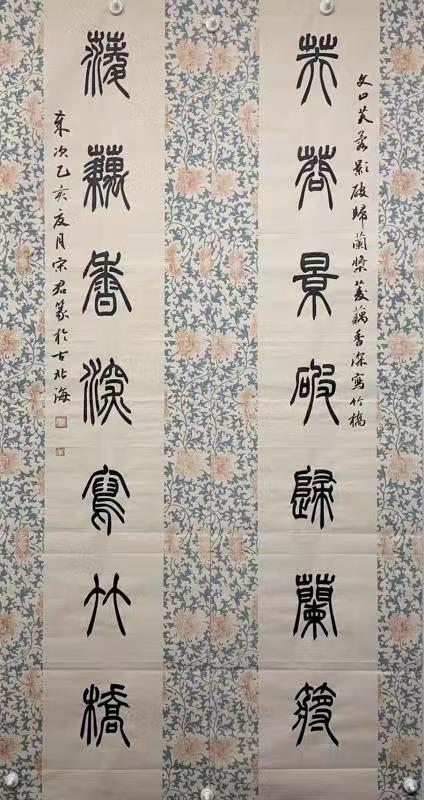 文曰芙蓉影破歸蘭槳菱藕香深寫竹橋
芙蓉景破歸蘭槳
蔆藕香深寫竹橋
歲次己亥夏月宋君篆於古北海